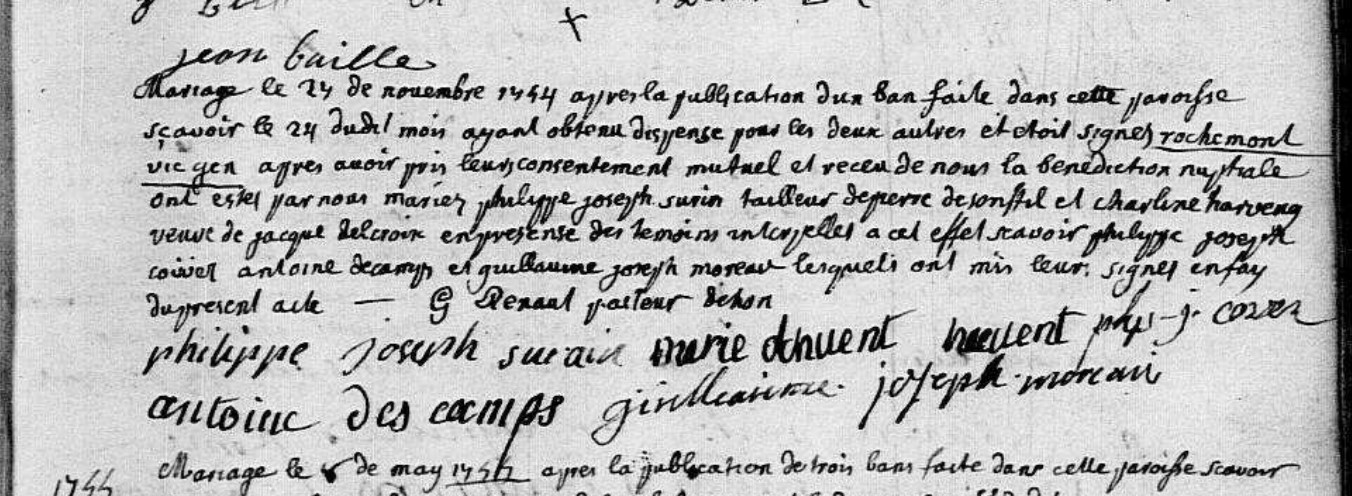 jean baille
Mariage le 24 de novembre 1754 apres la publication dun ban faite dans cette paroisse
sçavoir le 24 dudit mois ayant obtenu dispense pour les deux autres et etoit signez rochemont
vic gen apres avoir pris leurs consentement mutuel et receu de nous la benediction nuptiale
ont estes par nous mariez philippe joseph surin tailleur de pierre de et charline harveng
veuve de jacque delcroix en presense des temoins a cet effet scavoir philippe joseph
antoine decamps et guillaume joseph moreau lesquels ont mis leurs signes en foy
du present acte — G Renaut pasteur dehon
philippe joseph surain marie phps j.
antoine des camps guilleaume joseph moreau
Mariage le de may apres la publication de trois bans faite dans cette paroisse scavoir